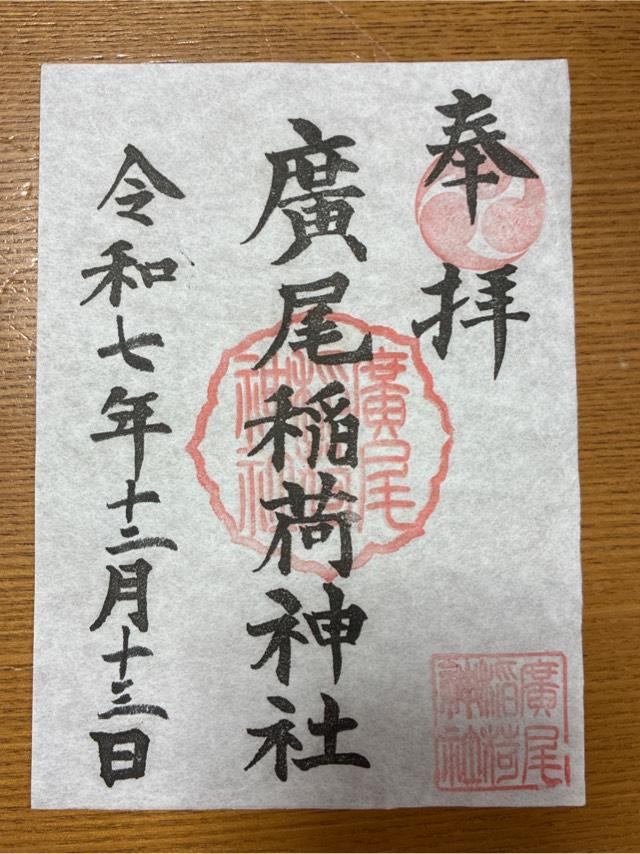 奉拝
廣尾稲荷神社
令和七年十二月十三日
廣尾
稲荷
神社
廣尾
稲荷
神社